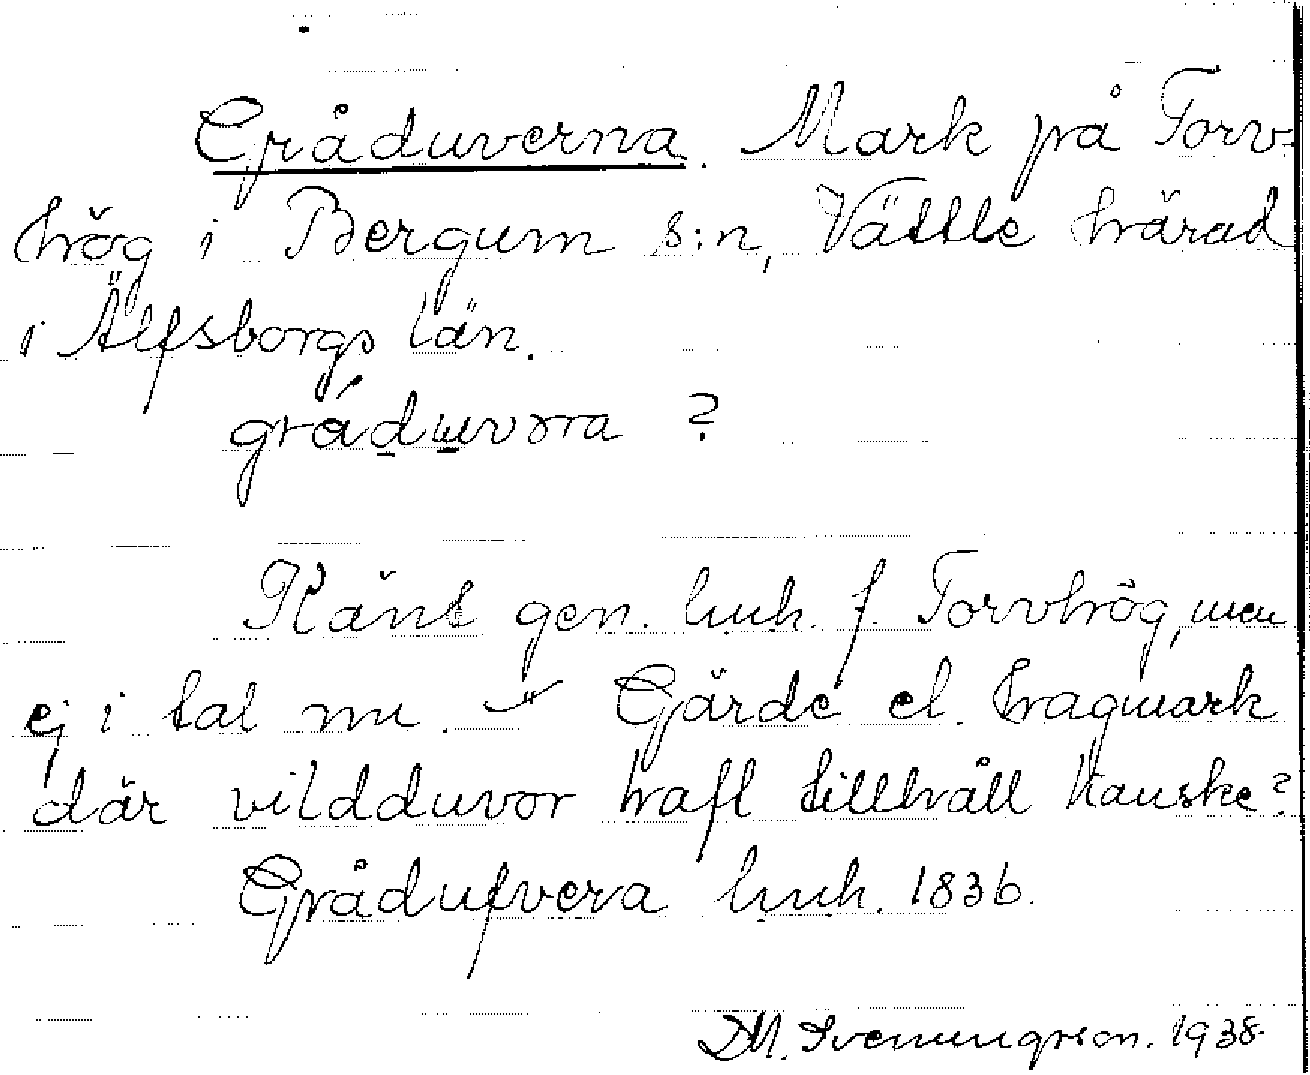 Gråduverna. Mark på Torv-
hög i Bergum s:n, Vättle härad
i Älfsborgs län.
gråduvơra ?
Känt gen. lmh. f. Torvhög, men
ej i tal nu. Gärde el. hagmark
där vildduvor haft tillhåll kanske?
Grådufvera lmh. 1836.
DM. Svenungsson. 1938